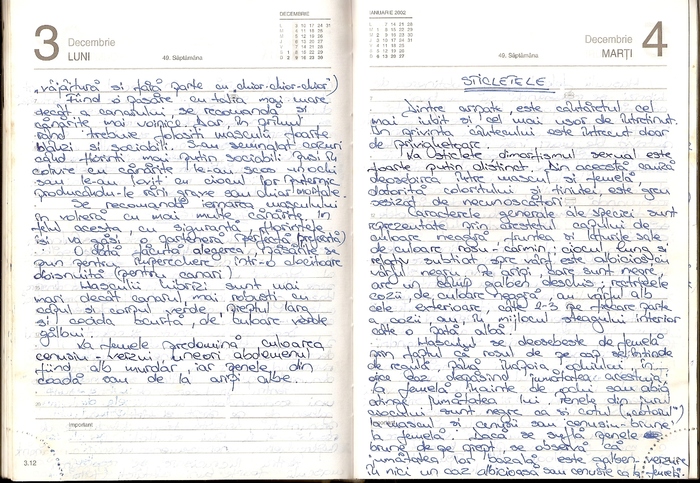 3 Decembrie
LUNI
49. Săptămâna
DECEMBRIE
„văpăitură și fără parte cu „chior-chior-chior")
Fiind o pasăre cu talia mai mare
decât a canarului, se recomandă și
canarițe mai voinice. Dar în primul
rând trebuie folosiți masculi foarte
blânzi și sociabili. S-au semnalat cazuri
când florinti mai puțin sociabili puși în
colivie cu canarițe le-au scos un ochi
sau le-au lovit cu ciocul lor puternic
producându-le răni grave sau chiar mortale.
Se recomandă iernarea masculului
în volieră cu mai multe canarițe, în
felul acesta, cu siguranță florintele
își va găsi o parteneră (perfectă/preferată)
O dată făcută alegerea, păsările se
pun pentru împerechere într-o clocitoare
obișnuită (pentru canari)
Masculii hibrizi sunt mai
mari decât canarul, mai robuști cu
capul și corpul verde, pieptul larg
și coada scurtă, de culoare verde
gălbui.
La femele predomină culoarea
cenușiu-verzui, uneori abdomenul
fiind alb murdar, iar penele din
coadă sau de la aripi albe.
Important
3.12
IANUARIE 2002
Decembrie 4
49. Săptămâna
MARȚI
STICLETELE
Dintre oaspete, este cântărețul cel
mai iubit și cel mai ușor de întreținut.
În privința cântecului este întrecut doar
de privighetoare.
La sticlete, dimorfismul sexual este
foarte puțin distinct. Din această cauză
deosebirea între mascul și femelă
datorită coloritului și ținutei, este greu
sesizat de necunoscători.
Caracterele generale ale speciei sunt
reprezentate prin creștetul capului de
culoare neagră, fruntea și laturile sale
de culoare roșu-carmin, ciocul lung și
relativ subțiat spre vârf este albicios cu
vârful negru. Pe aripi, care sunt negre,
are un câmp galben deschis, rectricele
cozii, de culoare neagră, au vârful alb
cele exterioare, câte 2-3 pe fiecare parte
a cozii au în mijlocul steagului interior
câte o pată albă.
Masculul se deosebește de femelă
prin faptul că roșul de pe cap se întinde
de regulă, până înapoia ochiului, în
orice caz depășind jumătatea acestuia,
la femelă înainte de ochi sau abia
atinge jumătatea lui. Penele din jurul
ciocului sunt negre ca și cotul („cotarul")
la mascul și cenușii sau cenușiu-brune
la femelă. Dacă se suflă penele
brune de pe piept, se observă că
jumătatea lor bazală este galben verzuie
în nici un caz albicioasă sau cenușie ca la femelă.